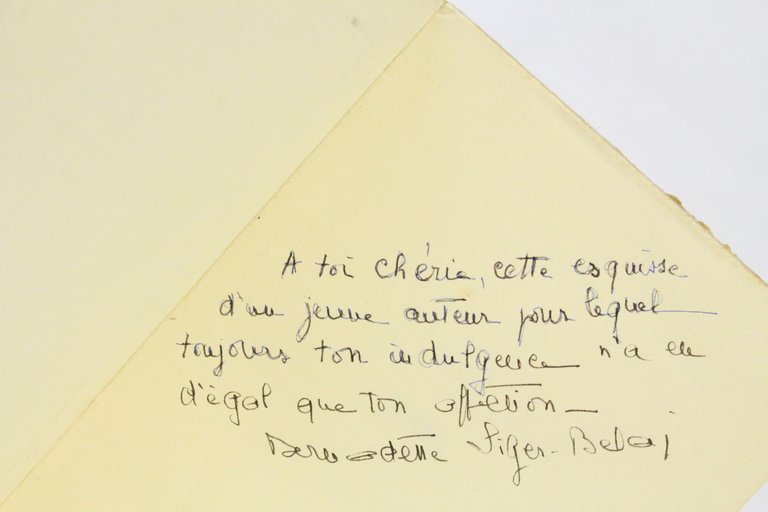 A toi chérie, cette esquisse
d'un jeune auteur pour lequel
toujours ton indulgence n'a eu
d'égal que ton affection –
Bernadette